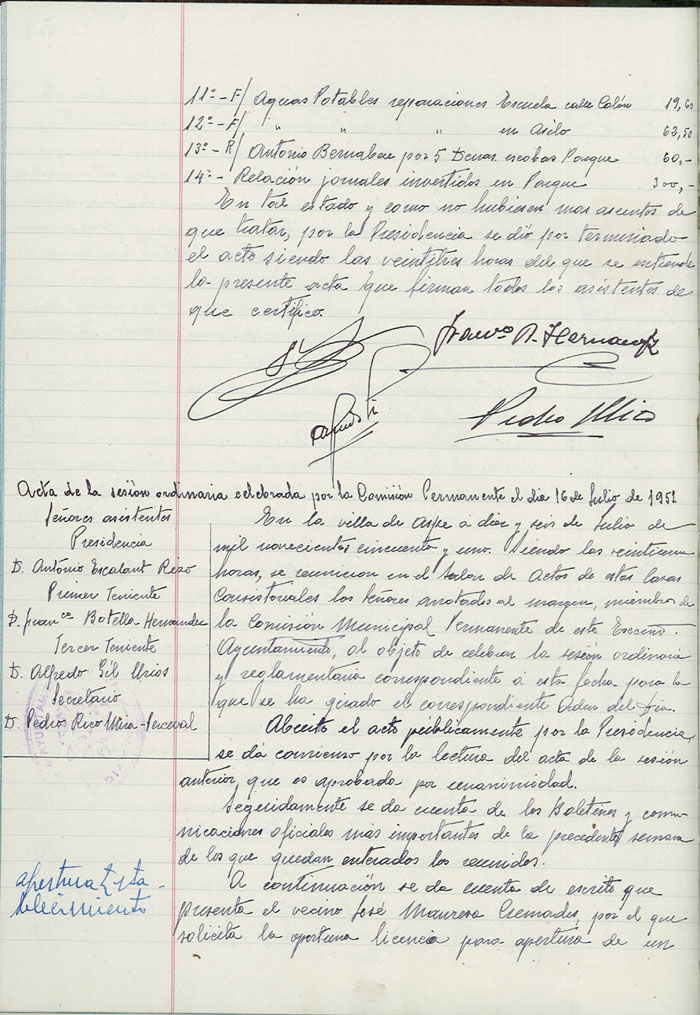 11º - F/ Aguas Potables reparaciones Escuela calle Colón 19,60
12º - F/ " " " en Asilo 63,50
13º - R/ Antonio Bernabeu por 5 Docenas escobas Parque 60,-
14º - Relación jornales invertidos en Parque 300,-
En tal estado y como no hubiesen mas asuntos de
que tratar, por la Presidencia se dió por terminado
el acto siendo las veintitres horas del que se extiende
la presente acta que firman todos los asistentes de
que certifico.
Franco B. Hernandez
Pedro Rico
Acta de la sesión ordinaria celebrada por la Comisión Permanente el dia 16 de Julio de 1951
Señores asistentes
Presidencia
D. Antonio Escalant Rizo
Primer Teniente
D. Franco Botella Hernandez
Tercer Teniente
D. Alfredo Gil Urios
Secretario
D. Pedro Rico Mira-Perceval
En la villa de Aspe a diez y seis de Julio de
mil novecientos cincuenta y uno. Siendo las veintiuna
horas, se reunieron en el Salon de Actos de estas Casas
Consistoriales los señores anotados al margen, miembros de
la Comisión Municipal Permanente de este Excmo.
Ayuntamiento, al objeto de celebrar la sesión ordinaria
y reglamentaria correspondiente a esta fecha para la
que se ha girado el correspondiente Orden del Dia.
Abierto el acto públicamente por la Presidencia,
se dá comienzo por la lectura del acta de la sesión
anterior, que es aprobada por unanimidad.
Seguidamente se da cuenta de los Boletines y comu-
nicaciones oficiales mas importantes de la precedente semana
de los que quedan enterados los reunidos.
apertura Esta-
blecimiento
A continuación se da cuenta de escrito que
presenta el vecino José Mauresa Cremades, por el que
solicita la oportuna licencia para apertura de un